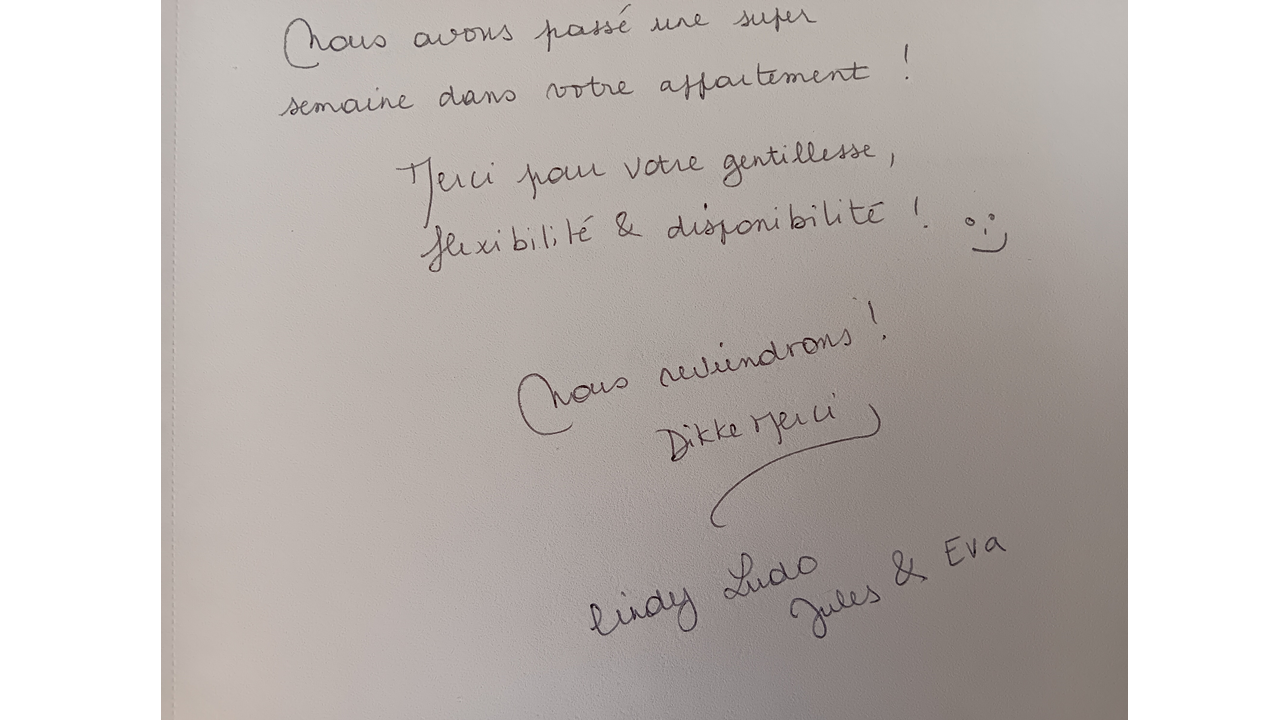 Nous avons passé une super
semaine dans votre appartement !
Merci pour votre gentillesse,
flexibilité & disponibilité !
Nous reviendrons !
Dikke Merci
Cindy Ludo
Jules & Eva